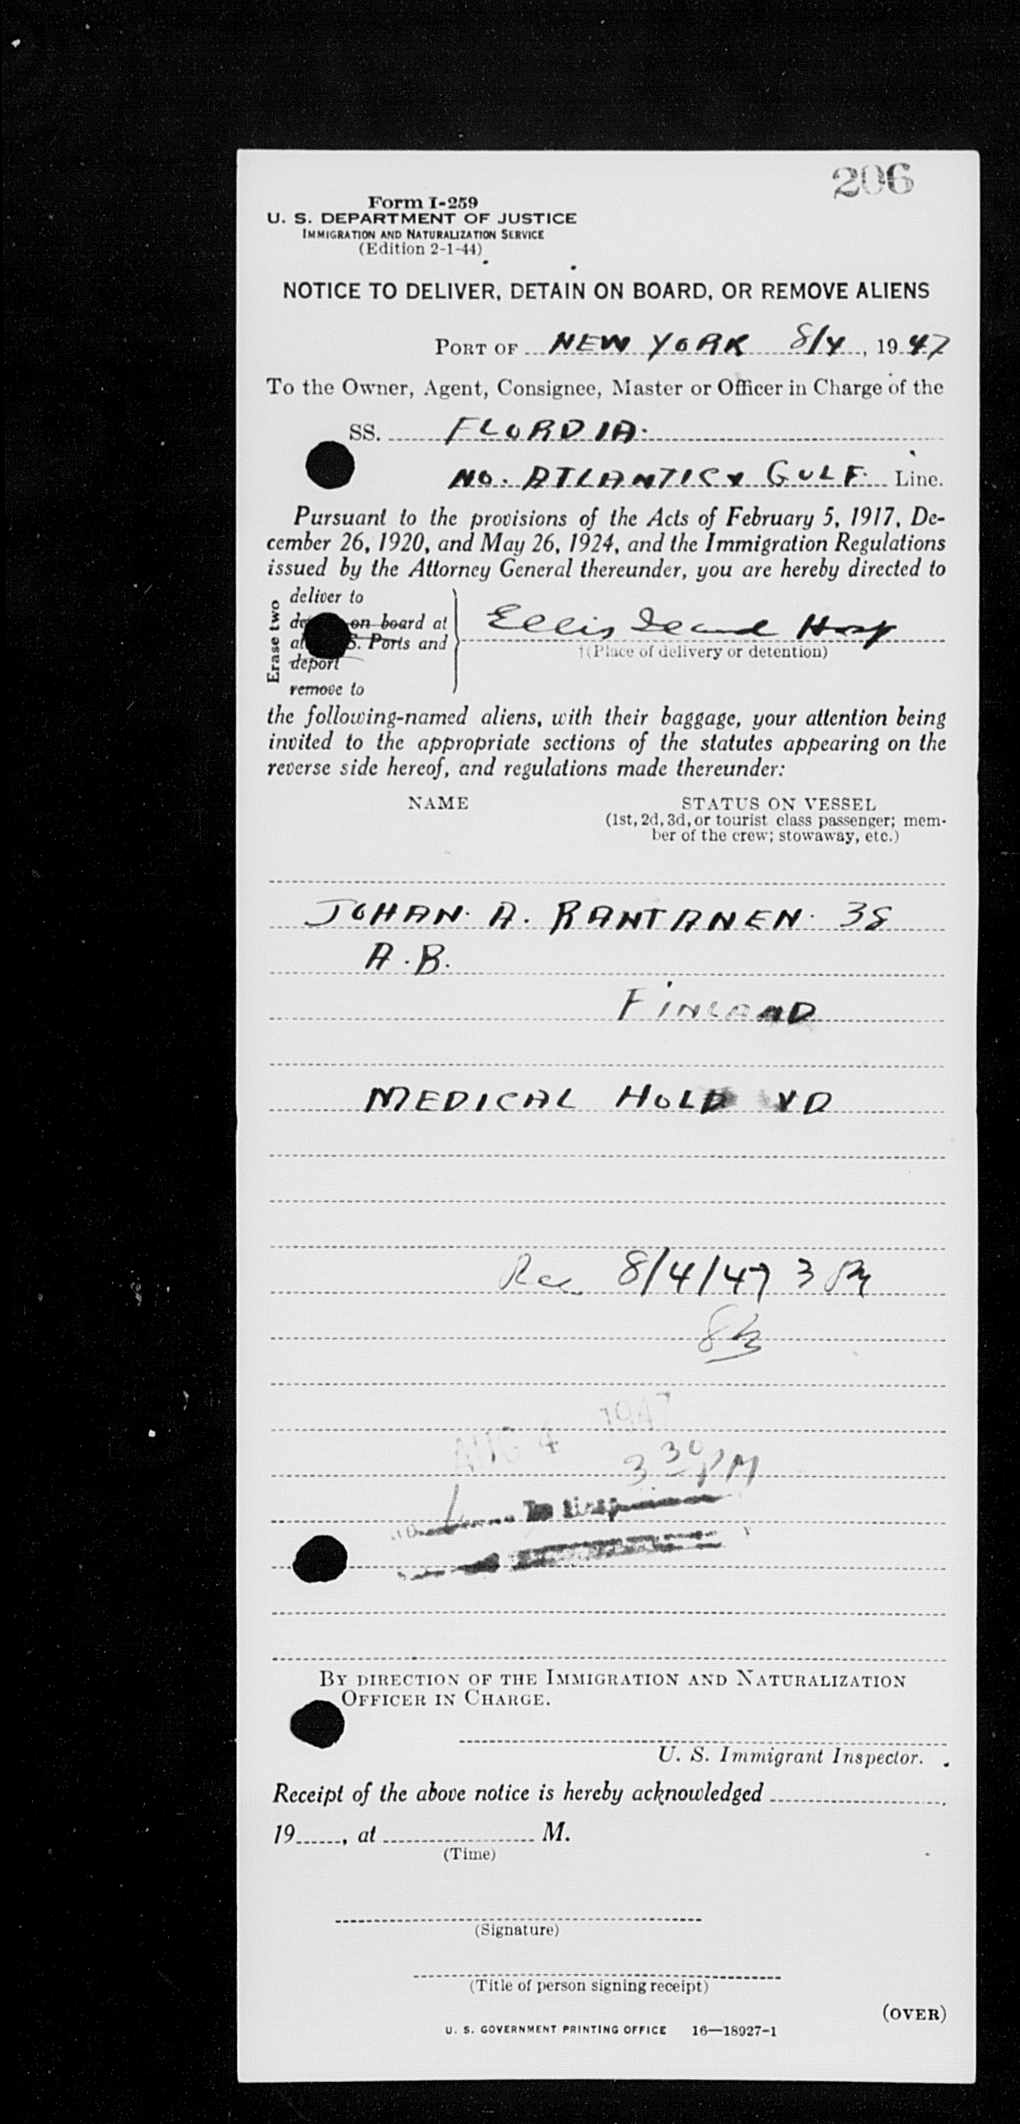 206
Form I-259
U. S. DEPARTMENT OF JUSTICE
IMMIGRATION AND NATURALIZATION SERVICE
(Edition 2-1-44)
NOTICE TO DELIVER, DETAIN ON BOARD, OR REMOVE ALIENS
PORT OF NEW YORK 8/4, 1947
To the Owner, Agent, Consignee, Master or Officer in Charge of the
SS. FLORDIA.
NO. ATLANTIC & GULF Line.
Pursuant to the provisions of the Acts of February 5, 1917, De-
cember 26, 1920, and May 26, 1924, and the Immigration Regulations
issued by the Attorney General thereunder, you are hereby directed to
Erase two
deliver to
on board at
S. Ports and
deport
remove to
Ellis Island Hosp
†(Place of delivery or detention)
the following-named aliens, with their baggage, your attention being
invited to the appropriate sections of the statutes appearing on the
reverse side hereof, and regulations made thereunder:
NAME STATUS ON VESSEL
(1st, 2d, 3d, or tourist class passenger; mem-
ber of the crew; stowaway, etc.)
JOHAN. A. RANTANEN. 38
A.B.
FINLAND
MEDICAL HOLD VD
Rec 8/4/47 3 PM
AUG 4 1947
3 30 PM
BY DIRECTION OF THE IMMIGRATION AND NATURALIZATION
OFFICER IN CHARGE.
U. S. Immigrant Inspector.
Receipt of the above notice is hereby acknowledged
19, at M.
(Time)
(Signature)
(Title of person signing receipt)
(OVER)
U. S. GOVERNMENT PRINTING OFFICE 16—18927-1